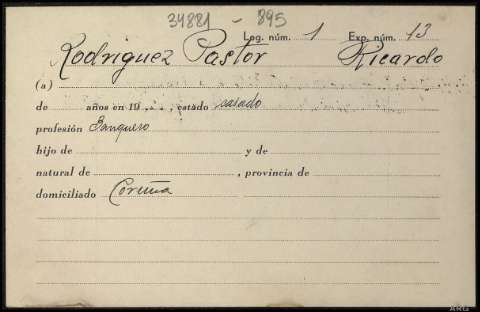 34881 - 895
Leg. núm. 1 Exp. núm. 13
Rodriguez Pastor Ricardo
(a)
de años en 19 , estado casado
profesión Banquero
hijo de y de
natural de , provincia de
domiciliado Coruña